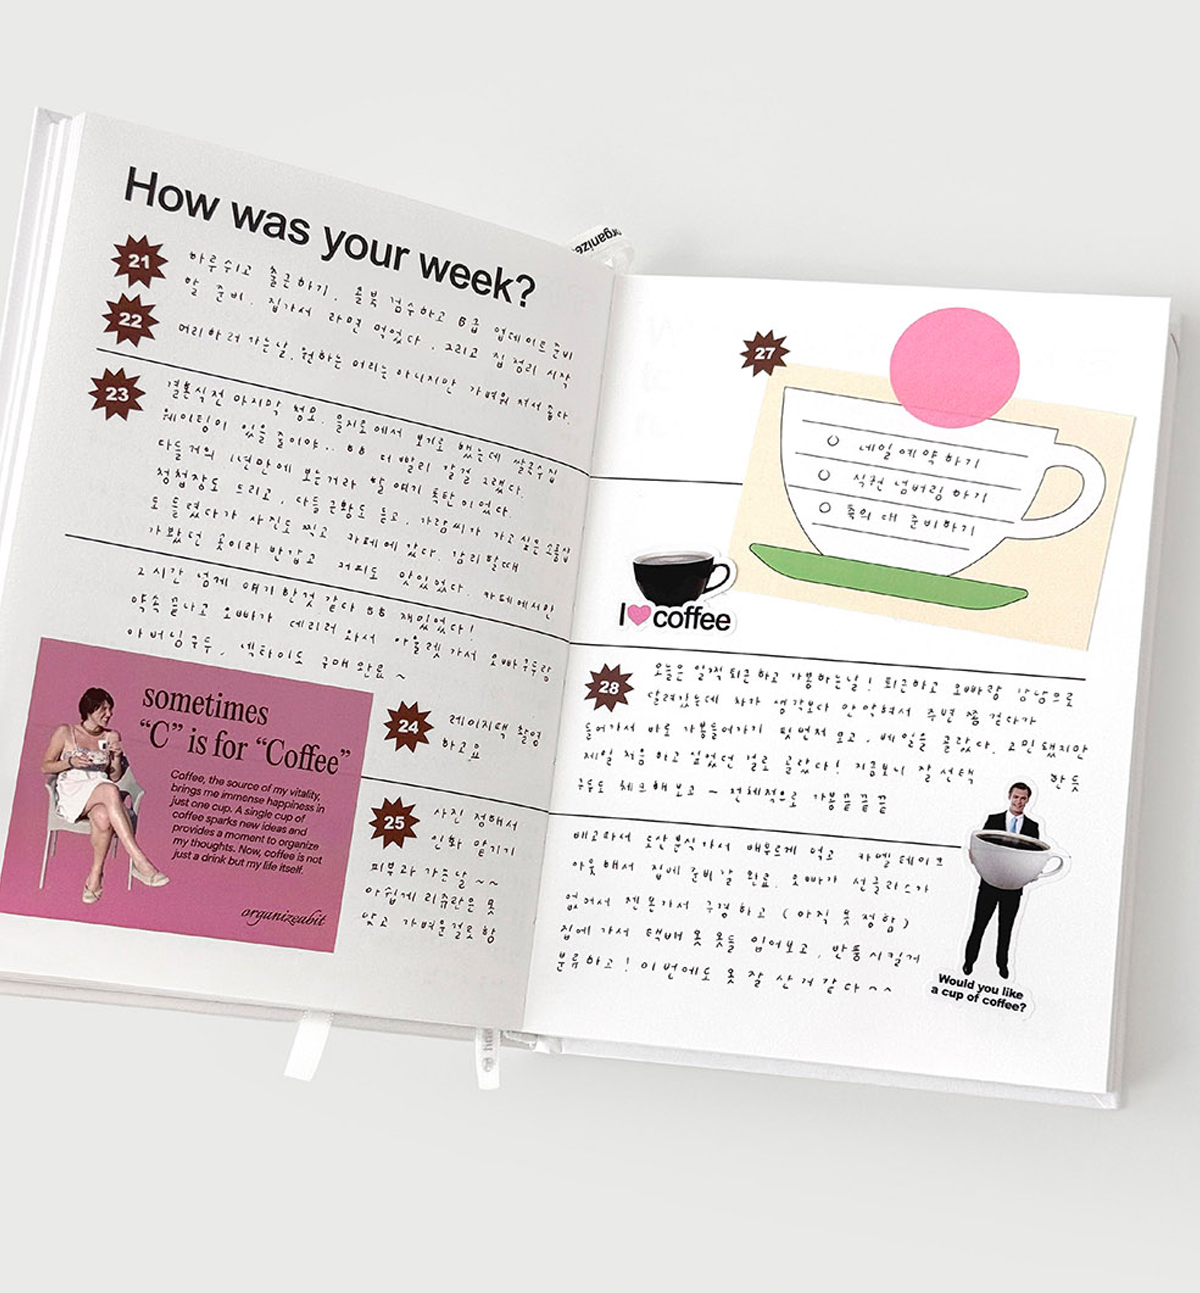 How was your week?
21
하루쉬고 출근하기, 올북 검수하고 B급 업데이트준비
할 준비. 집가서 라면 먹었다. 그리고 집 정리 시작
22
머리하러 가는날. 원하는 머리는 아니지만 가벼워져서 좋다.
23
결혼식전 마지막 청모. 을지로에서 보기로 했는데 쌀국수집
웨이팅이 있을 줄이야.. 더 빨리 갈걸 그랬다.
다들거의 1년만에 보는거라 할 얘기 폭탄이었다.
청첩장도 드리고, 다들근황도 듣고, 가람씨가 가고싶은 소품샵
도 들렸다가 사진도 찍고 카페에 갔다. 감리할때
가봤던 곳이라 반갑고 커피도 맛있었다. 카페에서만
2시간 넘게 얘기한것 같다 재밌었다!
약속 끝나고 오빠가 데리러 와서 아울렛가서 오빠구두랑
아버님구두, 넥타이도 구매 완료~
sometimes
“C” is for “Coffee”
Coffee, the source of my vitality,
brings me immense happiness in
just one cup. A single cup of
coffee sparks new ideas and
provides a moment to organize
my thoughts. Now, coffee is not
just a drink but my life itself.
organizeabit
24
레이지택 촬영
하고요
25
사진 정해서
인화 맡기기
피부과 가는날~~
아쉽게 리쥬란은 못
맞고 가벼운걸로함
organize
27
네일예약하기
식권 넘버링하기
축의대 준비하기
I coffee
28
오늘은 일찍퇴근하고 가봉하는날! 퇴근하고 오빠랑 강남으로
달려갔는데 차가 생각보다 안막혀서 주변 쫌 걷다가
들어가서 바로 가봉들어가기 핏 먼저 보고, 베일을 골랐다. 고민됐지만
제일 처음 하고싶었던 걸로 골랐다! 지금보니 잘 선택 한듯
구두도 체크해보고~ 전체적으로 가봉끝끝끝
배고파서 도산분식가서 배부르게 먹고 카멜 테이크
아웃해서 집에 준비갈 완료. 오빠가 선글라스가
없어서 젠몬가서 구경하고 (아직 못정함)
집에 가서 택배 온 옷들 입어보고, 반품시킬거
분류하고! 이번에도 옷 잘 산거같다^^
Would you like
a cup of coffee?